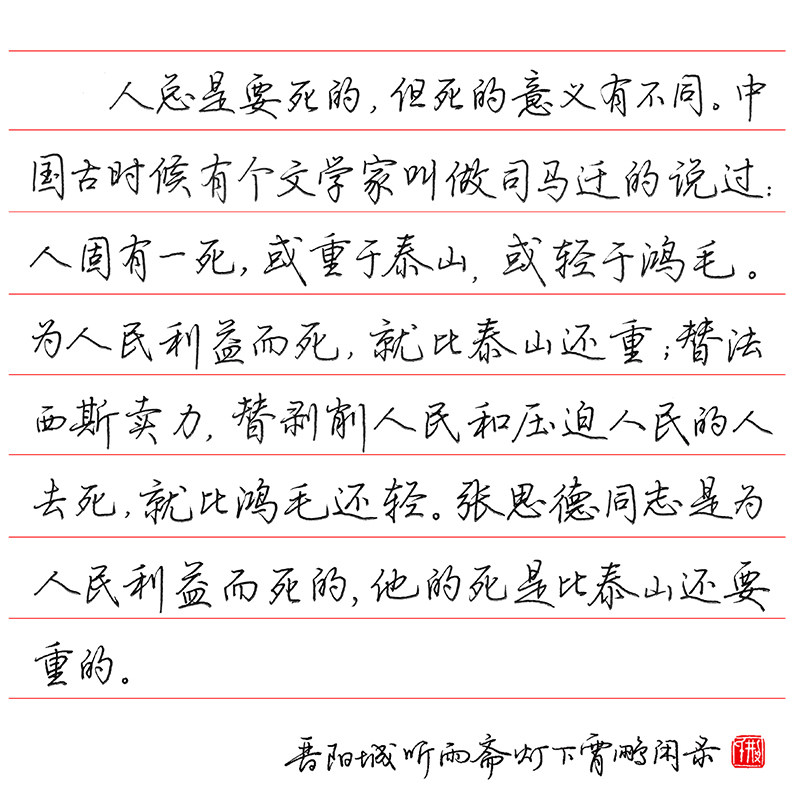 人总是要死的,但死的意义有不同。中
国古时候有个文学家叫做司马迁的说过:
人固有一死,或重于泰山,或轻于鸿毛。
为人民利益而死,就比泰山还重;替法
西斯卖力,替剥削人民和压迫人民的人
去死,就比鸿毛还轻。张思德同志是为
人民利益而死的,他的死是比泰山还要
重的。
晋阳城听雨斋灯下霄鹏闲录